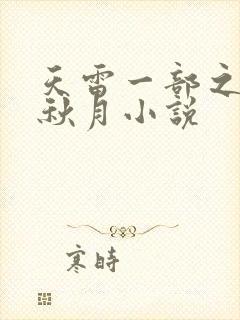 天雷一部之
秋月小説
寒時